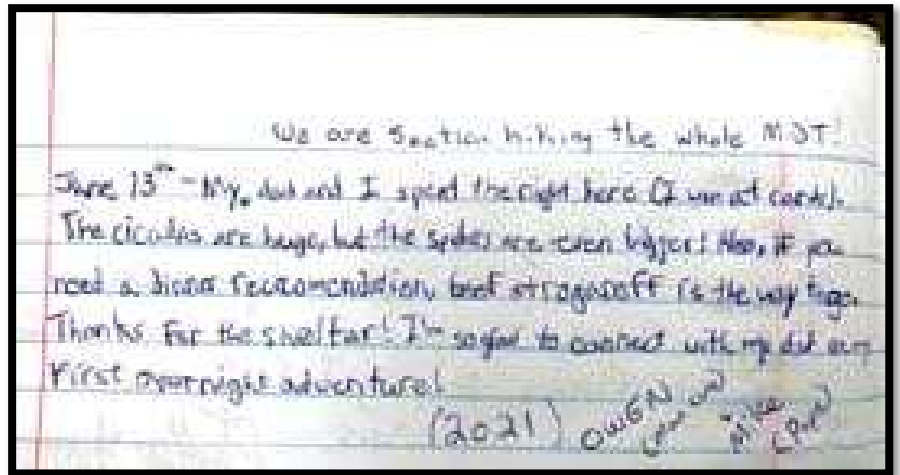 We are Section hiking the whole MST!
June 13th - My dad and I spent the night here
The cicadas are huge, but the spiders are even bigger! Also, if you
need a dinner reccomendation, beef stroganoff is the way to go.
Thanks for the shelter! I'm so glad to connect with my dad on my
First overnight adventure!
(2021) OWEN Mike (Dad)